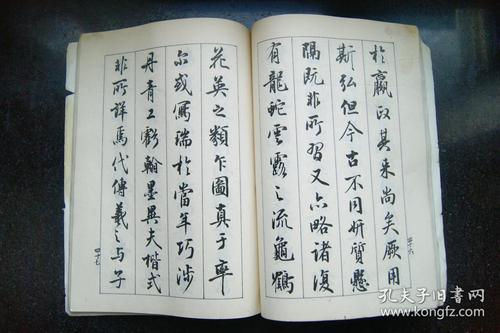 於嬴政其来尚矣厥用
斯弘但今古不同妍質懸
隔既非所習又亦略諸復
有龍蛇雲露之流龜鶴
四十六
花英之類乍圖真于率
尔或寫瑞於當年巧涉
丹青工虧翰墨異夫楷式
非所詳焉代傳羲之与子
四十七
孔夫子旧书网
www.kongfz.com